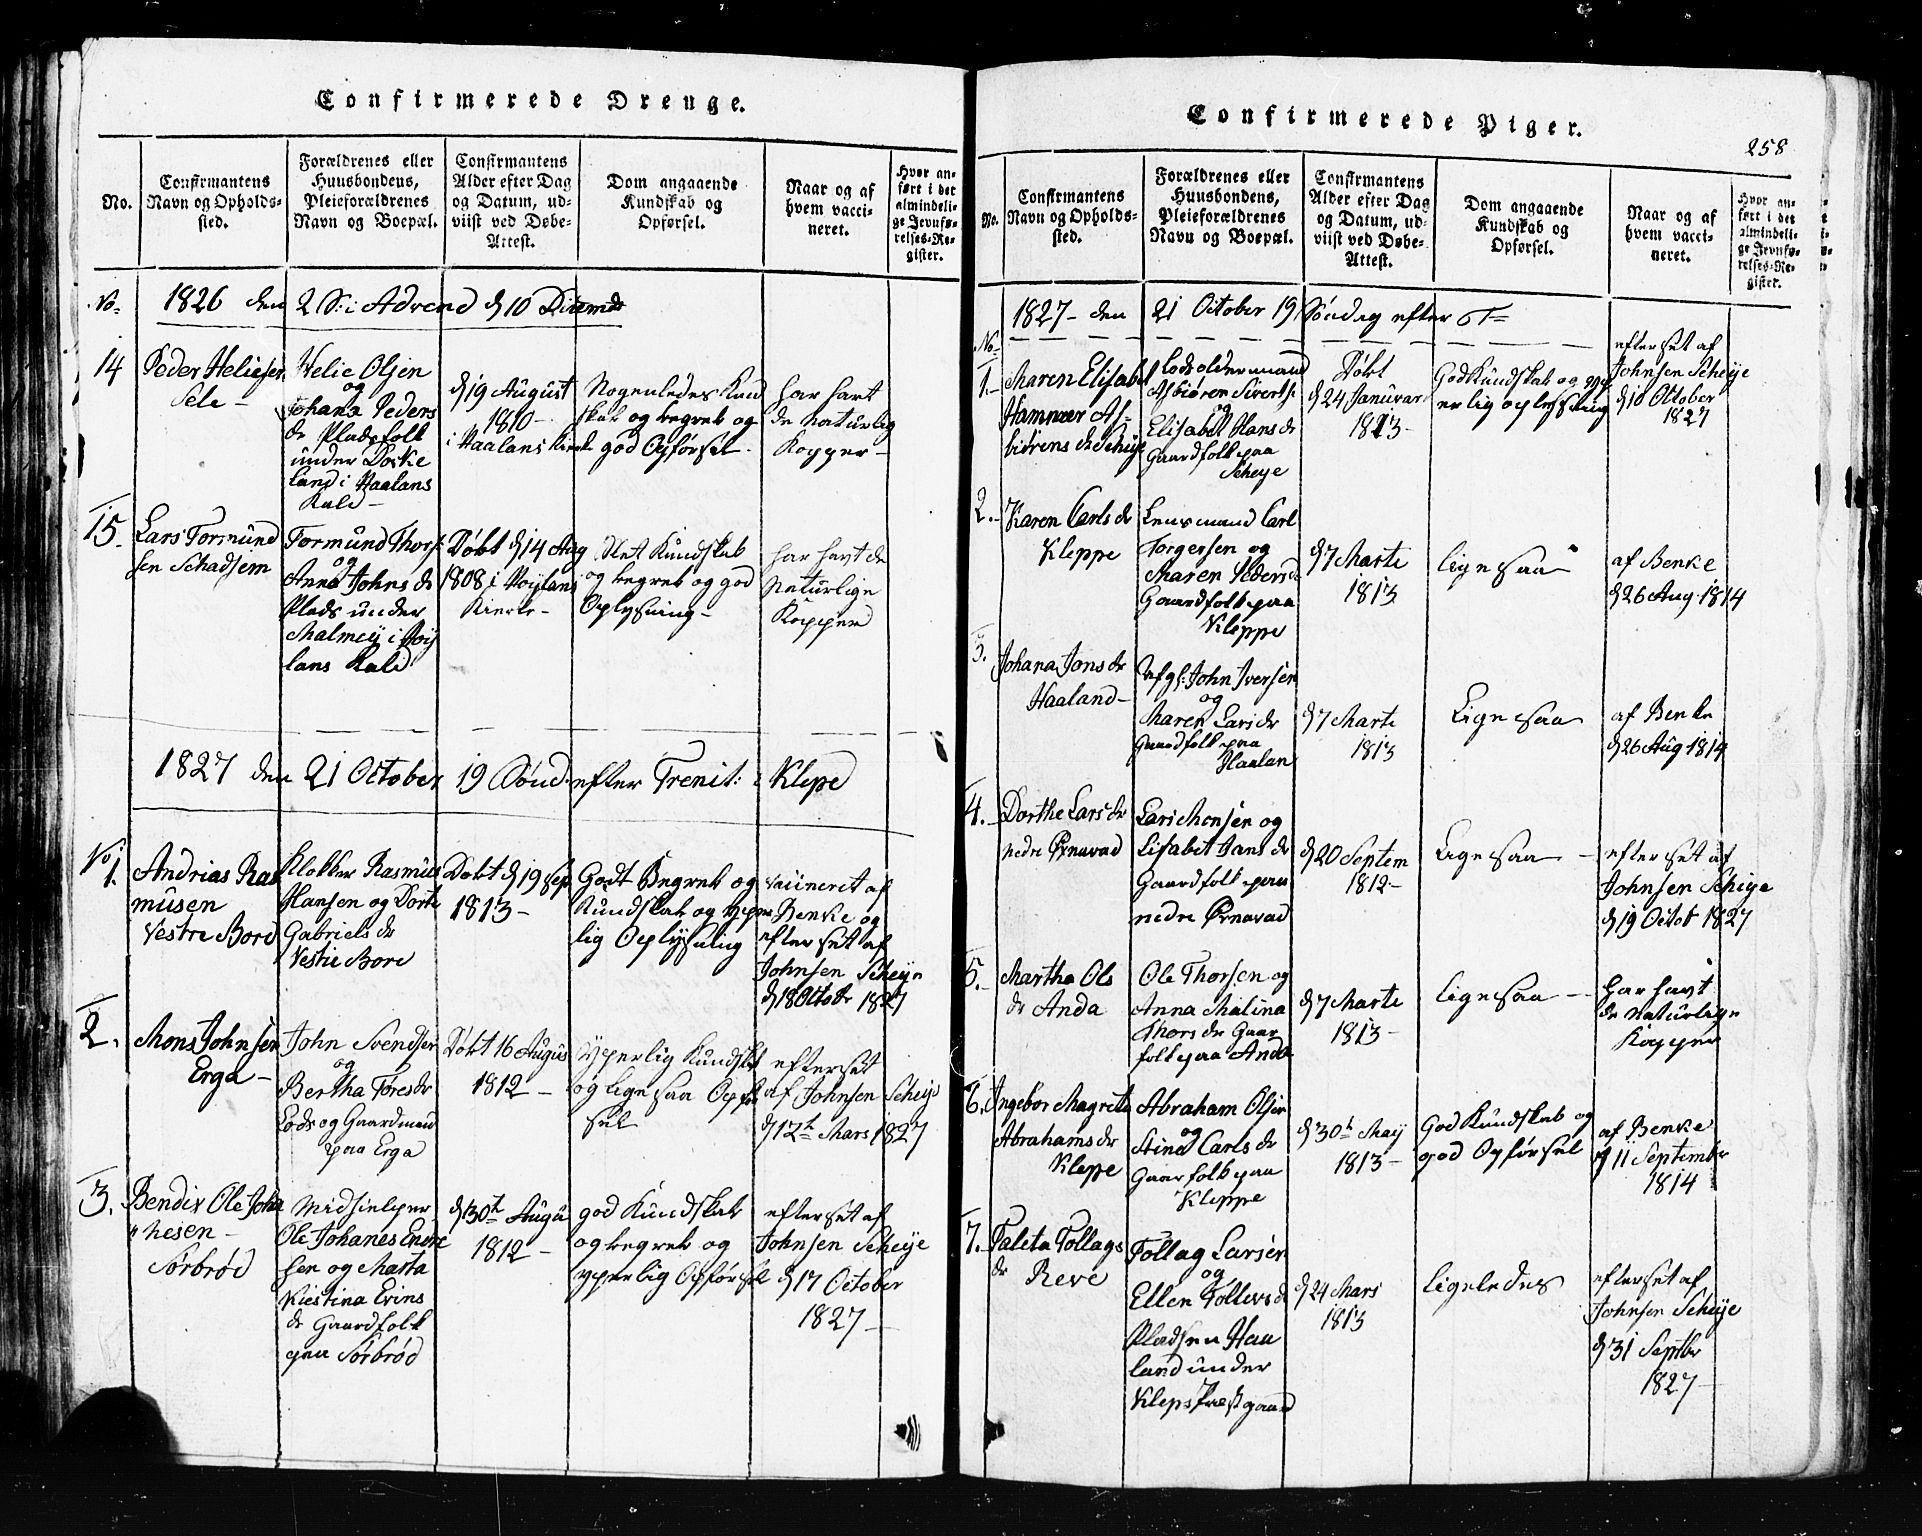 Confirmerede Drenge.
No.
Confirmantens
Navn og Opholds-
sted.
Forældrenes eller
Huusbondens,
Pleieforældrenes
Navn og Boepæl.
Confirmantens
Alder efter Dag
og Datum, ud-
viist ved Døbe-
Attest.
Dom angaaende
Kundskab og
Opførsel.
Naar og af
hvem vacci-
neret.
Hvor an-
ført i det
almindeli-
ge Jevnfø-
relses-Re-
gister.
No- 1826 den 2 S: i Advend d 10 Decemb
14
Peder Heliesen
Sele -
Helie Olsen
og
Johana Peders
dr Pladsfolk
under
land i Haalans
Kald -
d 19 August
1810 -
i Haalans Kirk
Nogenledes Kund
skab og begreb og
god Opførsel -
har havt
de naturlig
Kopper -
15
Lars Tormund
sen Schadsem
Tormund Thors
og
Anna Johns dr
Plads under
Malmey i Høy
lans Kald
Døbt d 14 Aug
1808 i Høylans
Kierke -
Slet Kundskab
og begreb og god
Oplysning -
har havt de
Naturlige
Kopper
1827 den 21 October 19 Sønd efter Trenit: i Klepe
No 1.
Andrias Ras
musen
Vestre Bore
Klokker Rasmus
Hansen og Dorte
Gabriels dr
Vestre Bore
Døbt d 19 Sep
1813 -
Godt Begreb og
Kundskab og yper
lig Oplysning
vaccineret af
Benke og
efterset af
Johnsen Scheye
d 18 Octobr 1827
2.
Mons Johnsen
Erga -
John Svendsen
og
Bertha Tores dr
Lods og Gaardmand
paa Erga
Døbt 16 Augus
1812 -
yperlig Kundskb
og ligesaa Opfør
sel
efterset
af Johnsen Scheye
d 12te Mars 1827
3.
Bendix Ole Joha
nesen -
Sørbrød
Midhielper
Ole Johanes Endre
sen og Marta
Kiestina Evins
dr Gaardfolk
paa Sørbrød
d 30te Augu
1812 -
god Kundskab
og begreb og
yperlig Opførsel
efterset af
Johnsen Scheye
d 17 October
1827 -
Confirmerede Piger.
258
No.
Confirmantens
Navn og Opholds-
sted.
Forældrenes eller
Huusbondens,
Pleieforældrenes
Navn og Boepæl.
Confirmantens
Alder efter Dag
og Datum, ud-
viist ved Døbe-
Attest.
Dom angaaende
Kundskab og
Opførsel.
Naar og af
hvem vacci-
neret.
Hvor an-
ført i det
almindeli-
ge Jevnfø-
relses-Re-
gister.
1827 - den 21 October 19 Søndag efter T=
No-
1.
Maren Elisabet
Hammer As-
biørens dr Scheye
Lodsoldermand
Asbiøren Sivertsn
og
Elisabet Hans dr
Gaardfolk paa
Scheye
Døbt
d 24 Januvar
1813 -
God Kundskab og yp
erlig oplysning
efterset af
Johnsen Scheye
d 10 October
1827
2.
Karen Carls dr
Kleppe
Lensmand Carl
Torgersen og
Maren Peders dr
Gaardfolk paa
Kleppe
d 7 Marti
1813
ligesaa
af Benke
d 26 Aug 1814
3.
Johana Jons dr
Haaland -
Afgl: John Iversen
og
Maren Lars dr
Gaardfolk paa
Haalan
d 7 Marti
1813
Ligesaa
af Benke
d 26 Aug 1814
4.
Dorthe Lars dr
nedre Ørnavad
Lars Monsen og
Lisabet Jans dr
Gaardfolk paa
nedre Ørnavad
d 20 Septem
1812 -
Ligesaa -
efterset af
Johnsen Scheye
d 19 Octob 1827
5.
Martha Ols
dr Anda
Ole Thorsen og
Anna Malina
Thors dr Gaar
folk paa Anda
d 7 Marti
1813 -
ligesaa -
har havt
de Naturlige
Kopper
6.
Ingebor Magreta
Abrahams dr
Kleppe
Abraham Olsen
og
Stina Carls dr
Gaarfolk paa
Kleppe
d 30te May
1813 -
God Kundskab og
god Opførsel
af Benke
d 11 September
1814
7.
Taleta Tollags
dr Reve
Tollag Larsen
og
Ellen Tollevs dr
Pladsen Haa
land under
Kleps Præstgaard
d 24 Mars
1813
ligeledes
efterset af
Johnsen Scheye
d 31 Septbr
1827 -